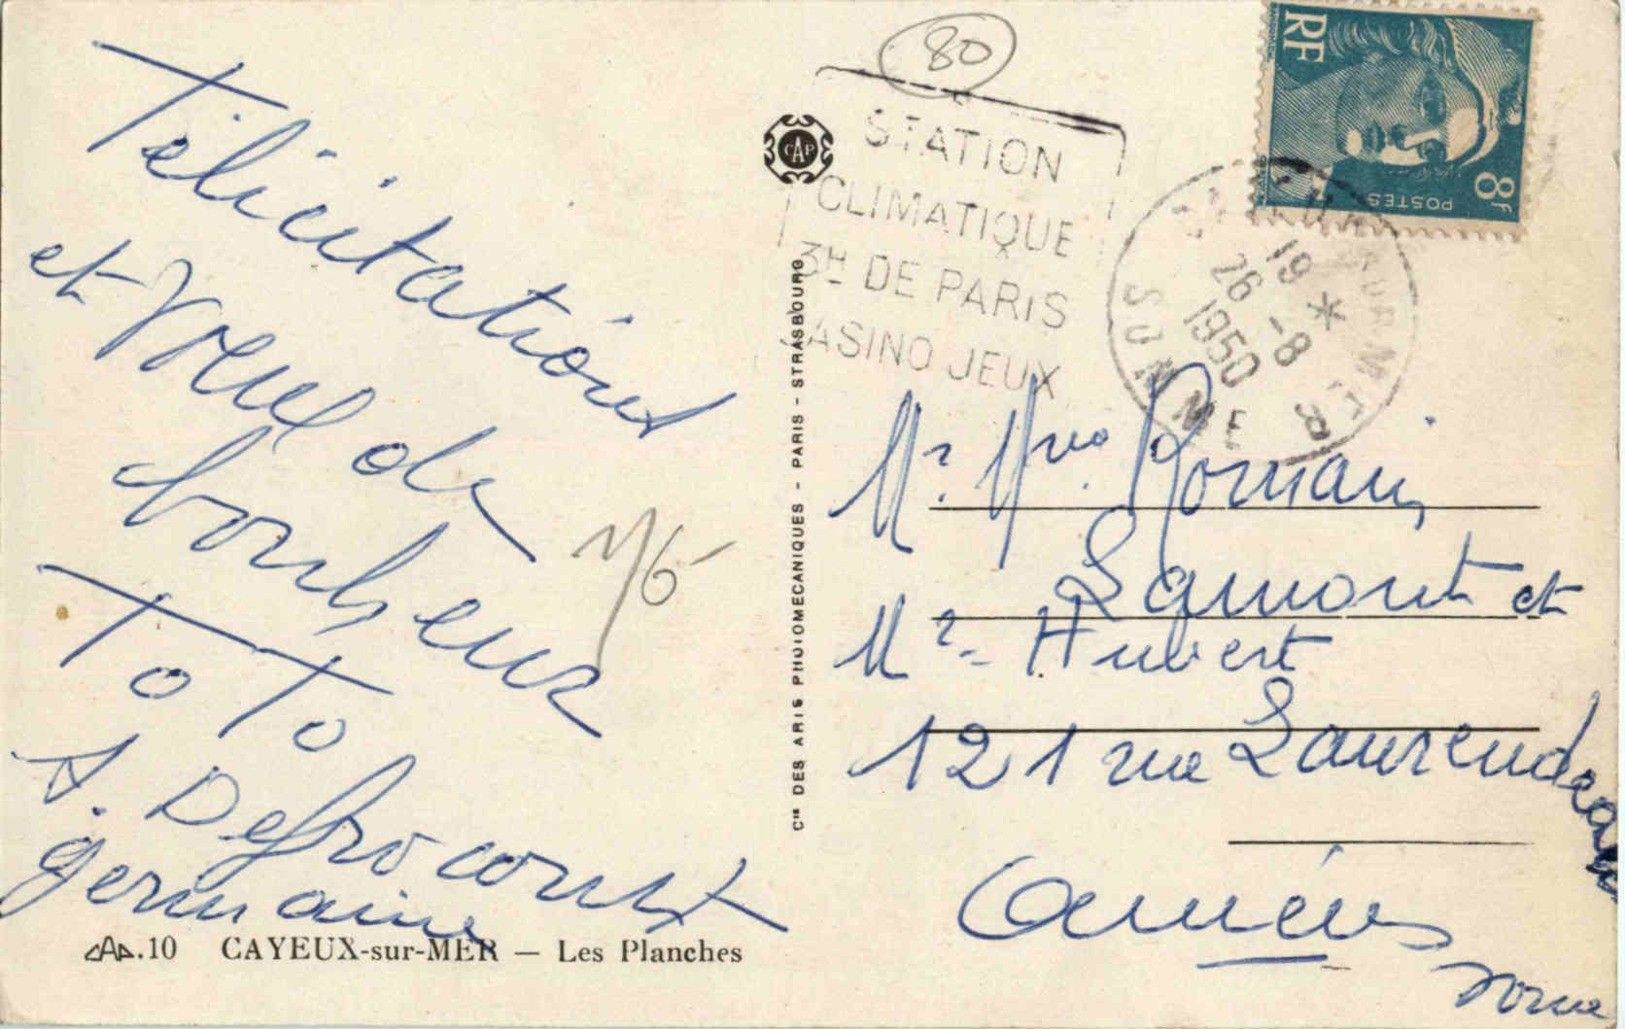 Félicitations
et Voeux de
bonheur
To To
A. Defrocourt
germaine
CAP.10 CAYEUX-sur-MER — Les Planches
Cie DES ARTS PHOTOMECANIQUES - PARIS - STRASBOURG
CAP
80
STATION
CLIMATIQUE
3H DE PARIS
CASINO JEUX
19 *
26 -8
1950
SOMME
RF
POSTES
8F
Mr. Mme. Romain
Lamont et
Mr. Hubert
121 rue Laurendeau
Amiens
Somme